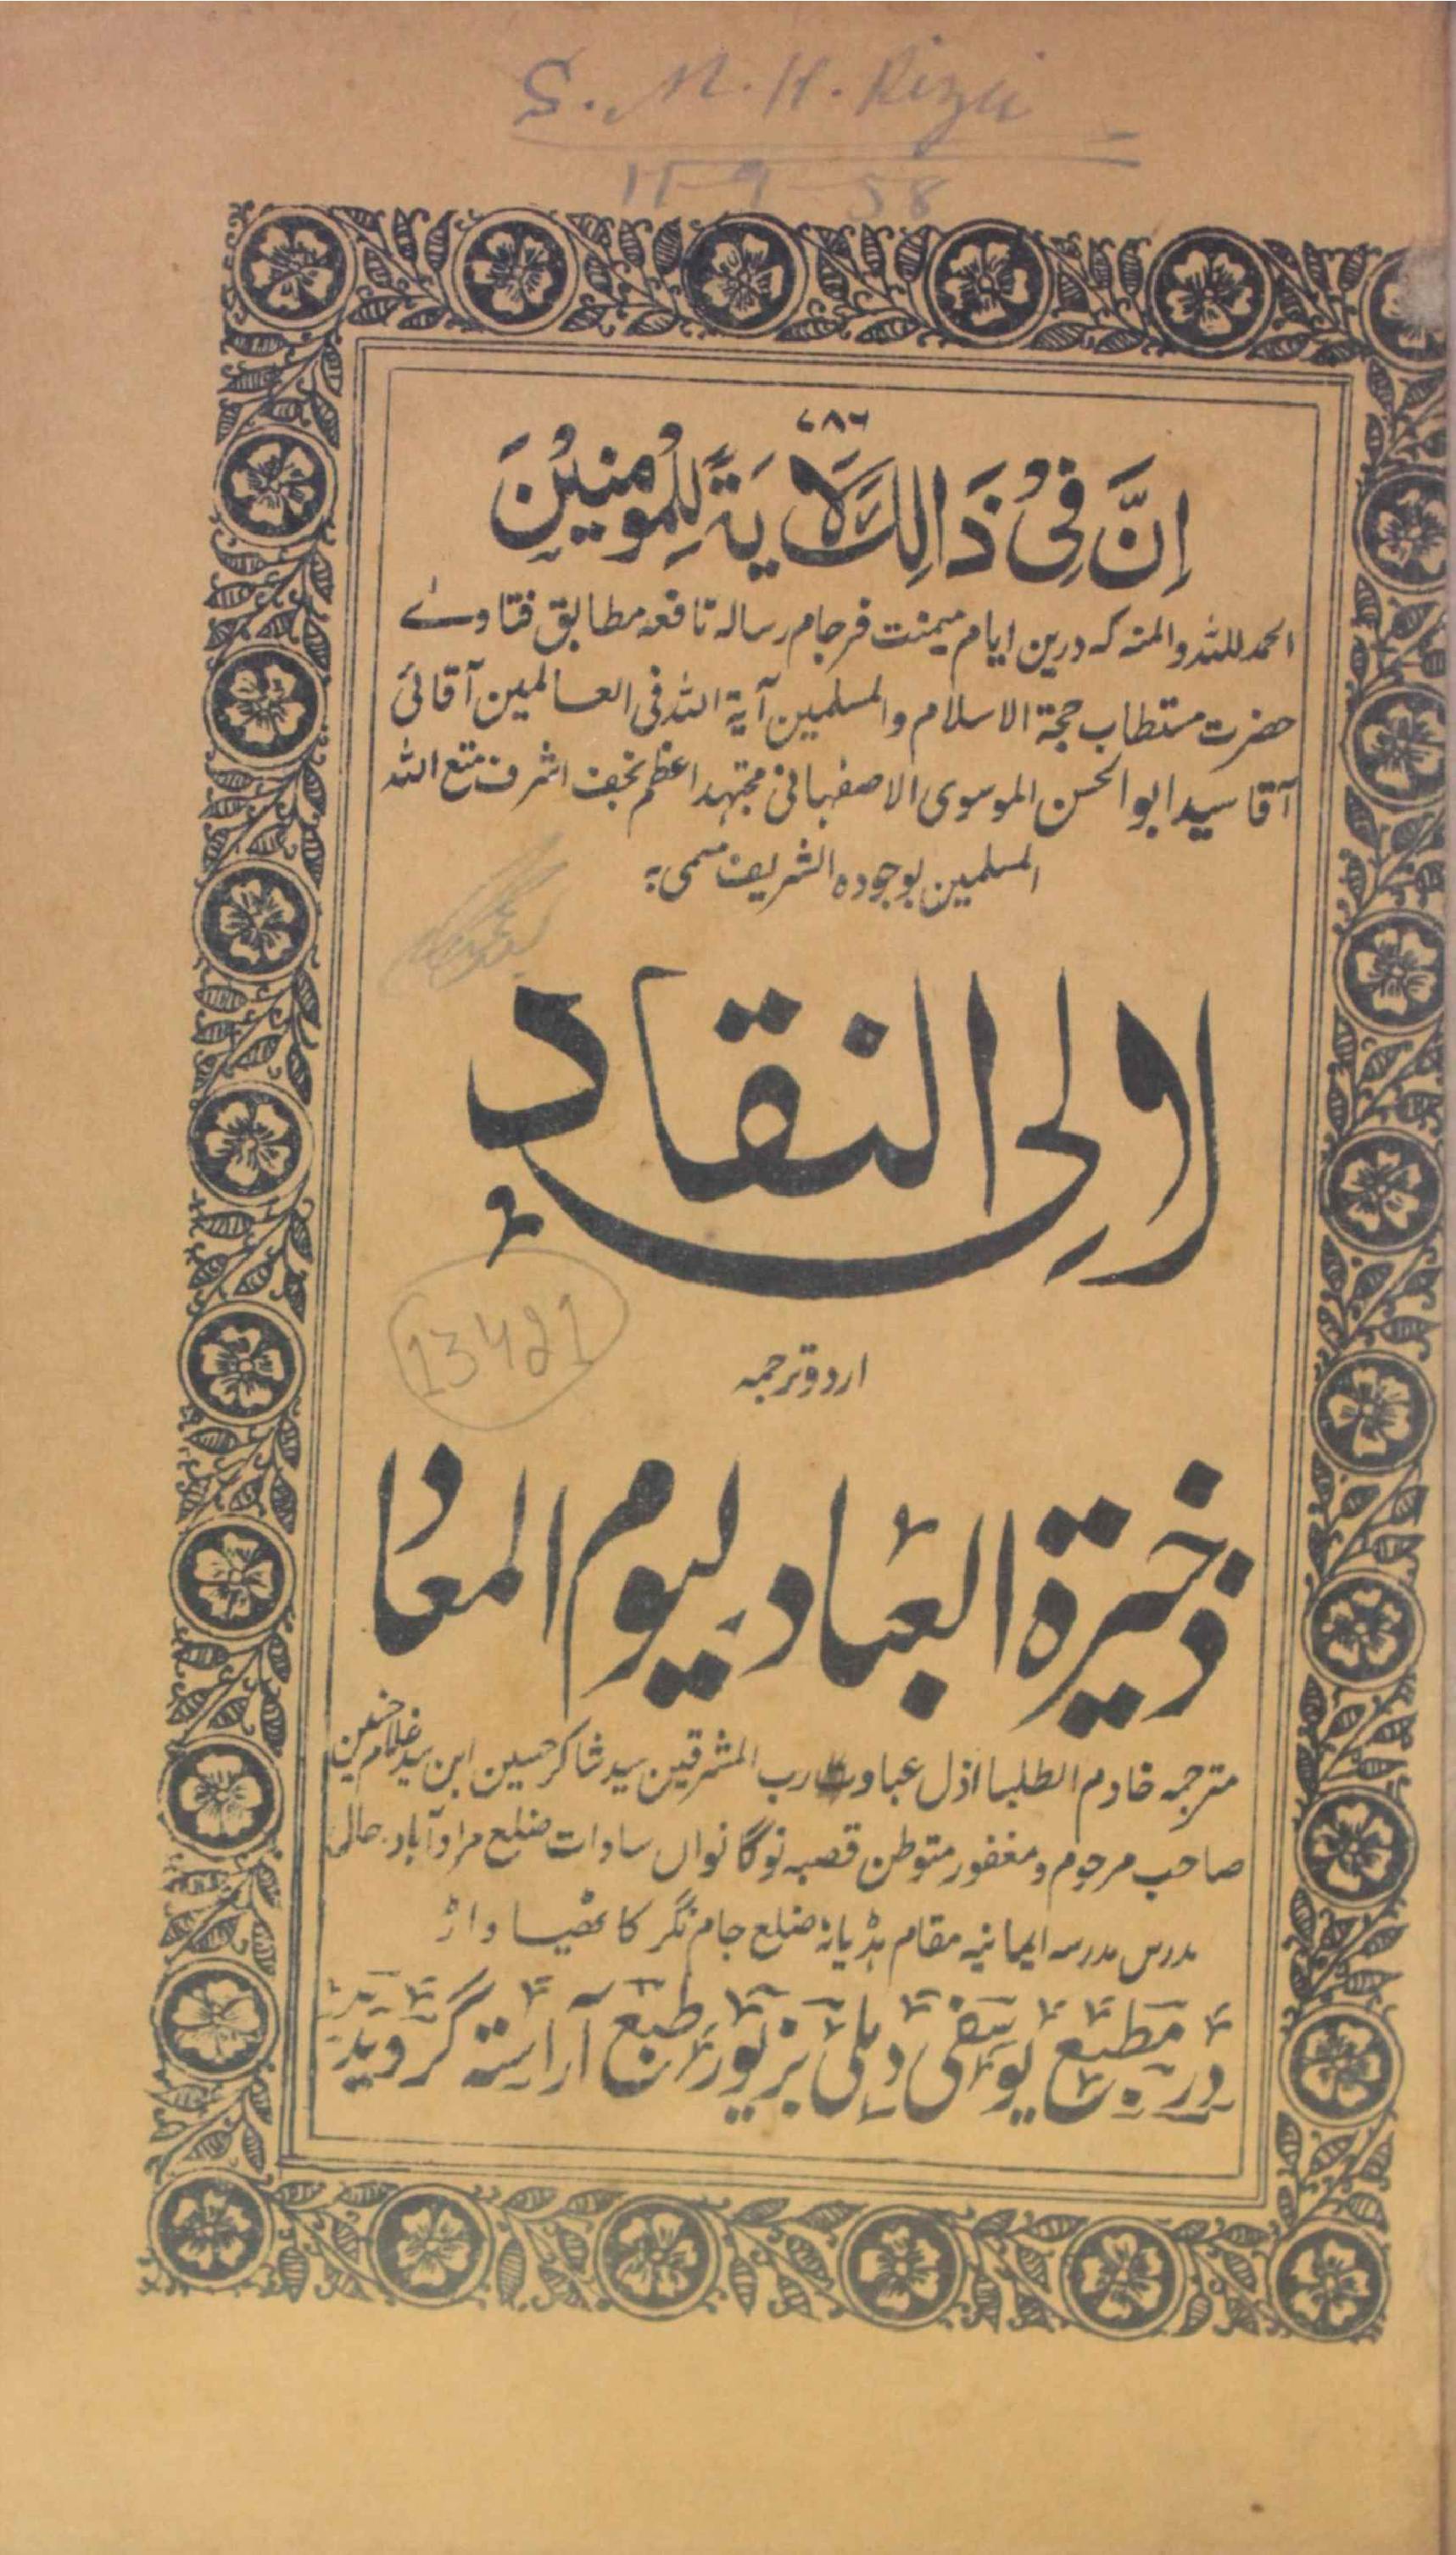 S. M. H. Rizvi
11-9-58
۷۸۶
اِنَّ فِیْ ذَالِكَ لَاٰيَةً لِلْمُومِنِيْنَ
الحمد للہ والمنہ کہ درین ایام میمنت فرجام رسالہ نافعہ مطابق فتاوے
حضرت مستطاب حجۃ الاسلام والمسلمین آیۃ اللہ فی العالمین آقائی
آقا سید ابو الحسن الموسوی الاصفہانی مجتہد اعظم نجف اشرف متع اللہ
المسلمین بوجودہ الشریف مسمی بہ
لاولِی النقاد
13421
اردو ترجمہ
ذخیرۃ العباد لیوم المعاد
مترجمہ خادم الطلبا اذل عباد رب المشرقین سید شاکر حسین ابن سید غلام حسنین
صاحب مرحوم و مغفور متوطن قصبہ نوگانواں سادات ضلع مرادآباد حالی
مدرس مدرسہ ایمانیہ مقام ہڈیانہ ضلع جام نگر کاٹھیاواڑ
در مطبع یوسفی دہلی بزیور طبع آراستہ گردید